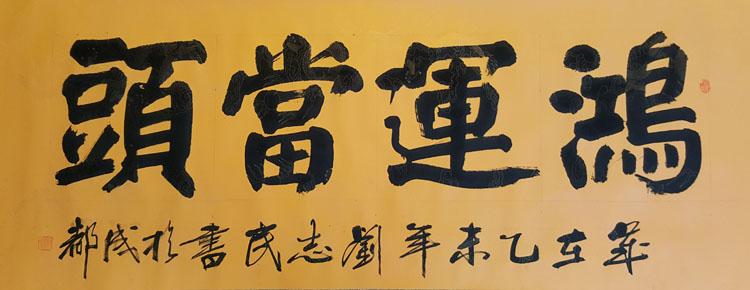 鴻運當頭
歲在乙未年劉志民書於成都